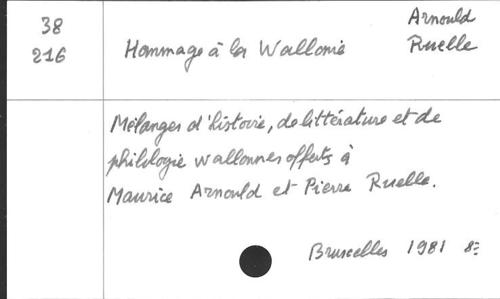 38
216
Hommage à la Wallonie
Arnould
Ruelle
Mélanges d'histoire, de littérature et de
philologie wallonnes offerts à
Maurice Arnould et Pierre Ruelle.
Bruxelles 1981 8º